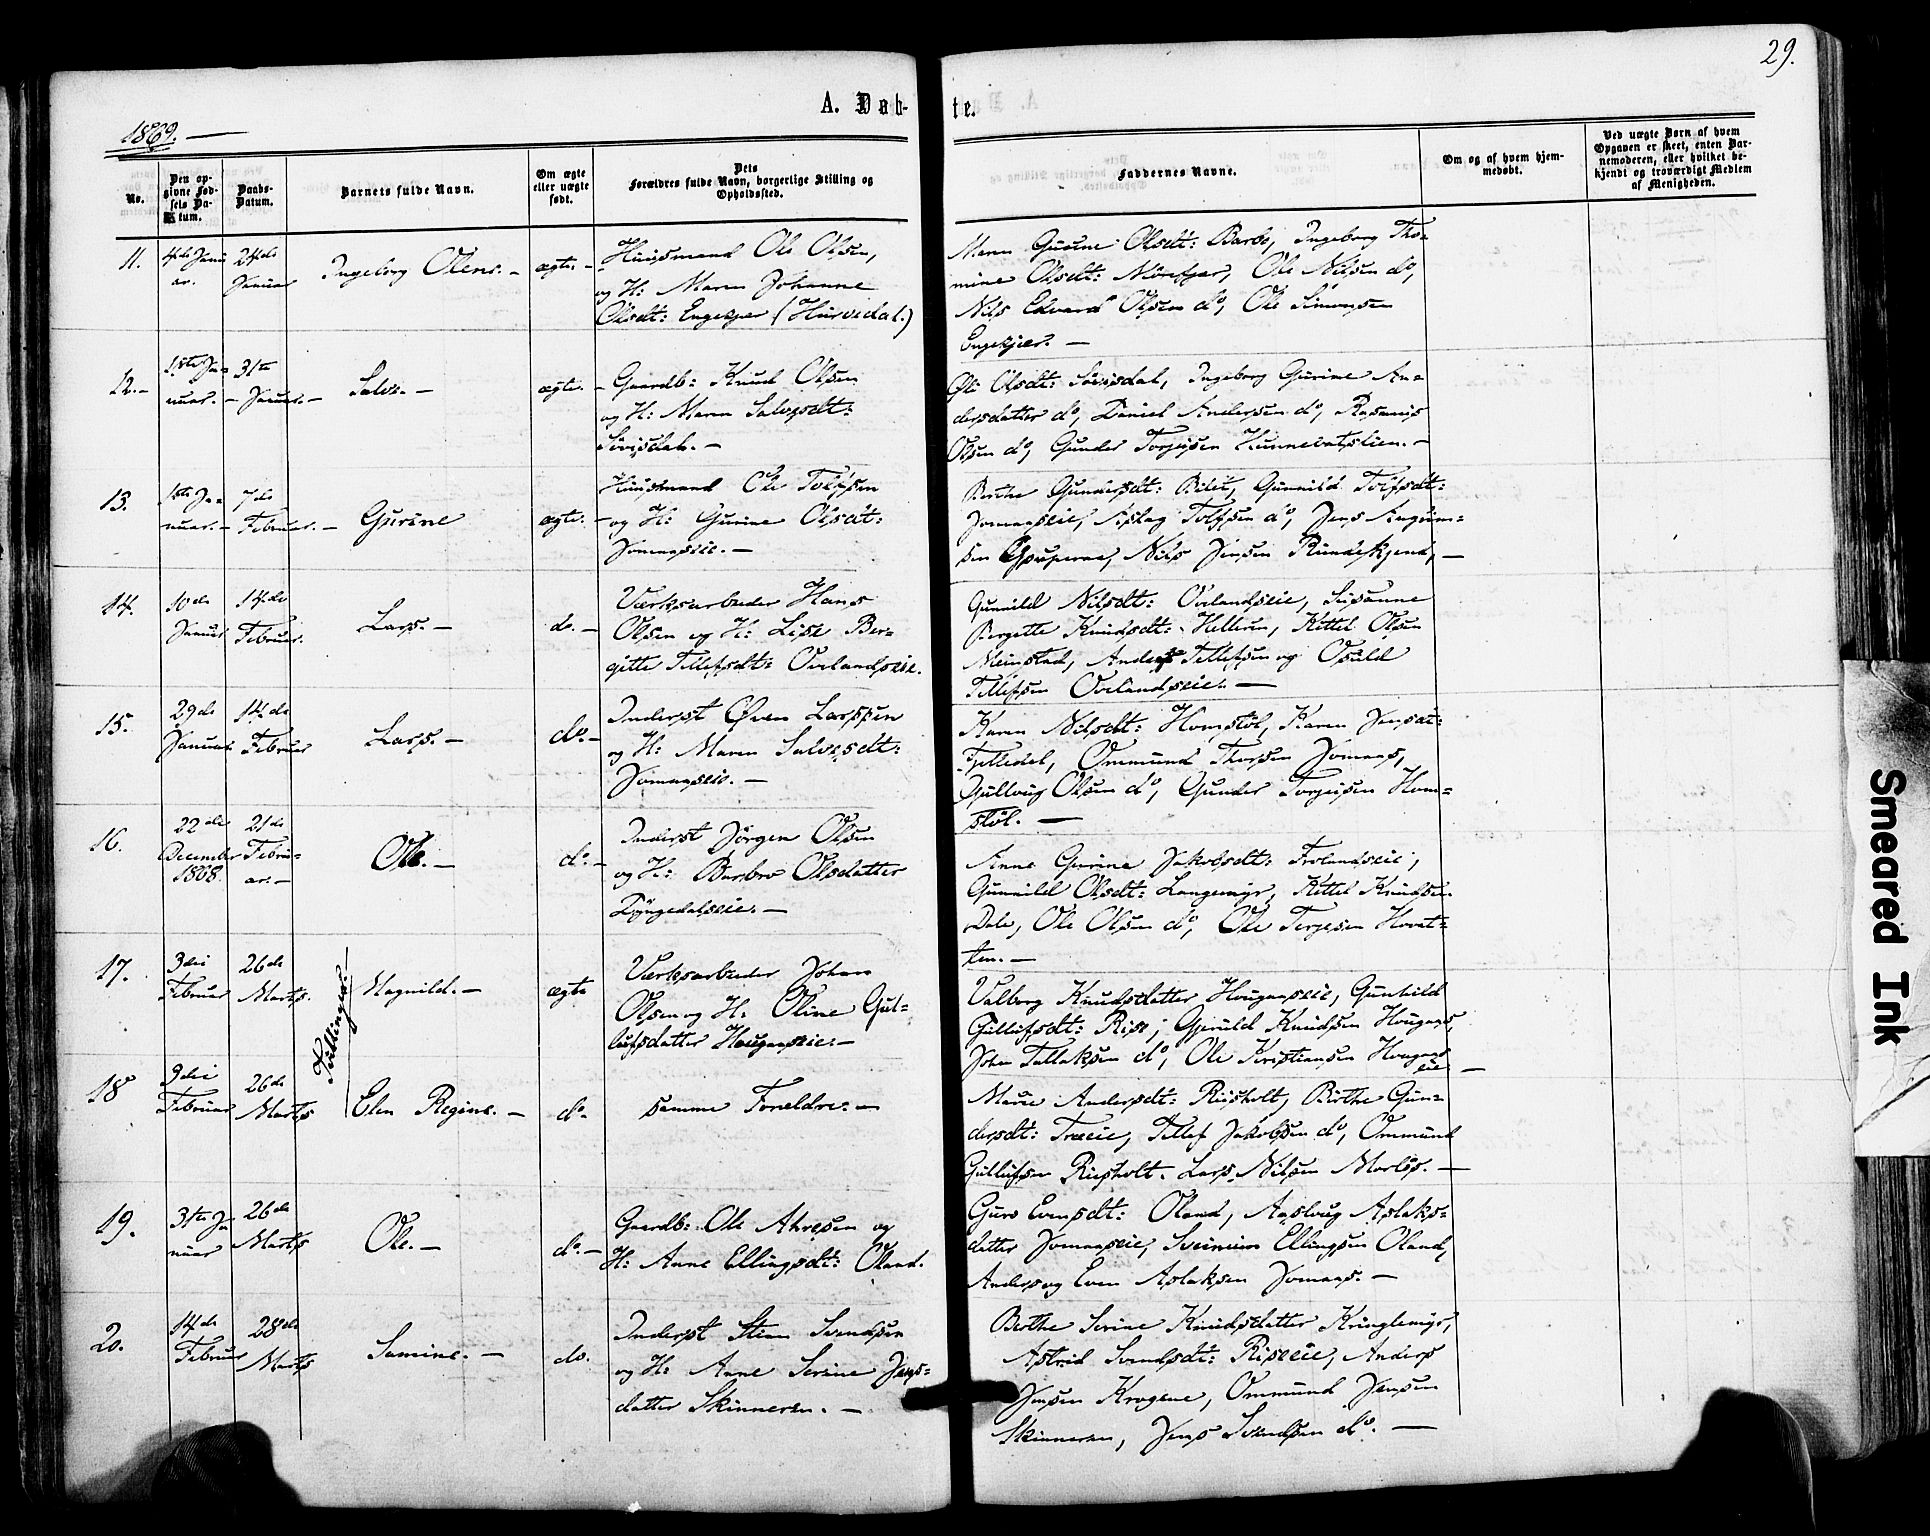 29.
A. Døb-
te.
1869. —
No.
Den op-
givne Fød-
sels Da-
tum.
Daabs-
Datum.
Barnets fulde Navn.
Om ægte
eller uægte
født.
Dets
Forældres fulde Navn, borgerlige Stilling og
Opholdssted.
Faddernes Navne.
Om og af hvem hjem-
medøbt.
Ved uægte Børn af hvem
Opgaven er skeet, enten Bar-
nemoderen, eller hvilket be-
kjendt og troværdigt Medlem
af Menigheden.
11.
4de Janu
ar.
24de
Januar
Ingeborg Olene. –
ægte. –
Huusmand Ole Olsen,
og H: Maren Johanne
Olsdt: Engekjær (Hurvedal.)
Maren Gurine Olsdt: Barbo, Ingeborg Tho-
mine Olsdt: Mørefjær, Ole Nilsen do,
Nils Edvard Olsen do, Ole Simonsen
Engekjær. —
12. –
Januar. –
31te
Januar. –
Salve. –
ægte. –
Gaardb: Knud Olsen
og H: Maren Salvesdt:
Sivisdal. –
Olsdt: Sivisdal, Ingeborg Gurine An-
dersdatter do, Daniel Andersen do, Rasmus
Olsen do, Gunder Torjusen Hunnevatslien. –
13.
1ste Ja-
nuar. –
7de
Februar. –
Gurine
ægte. –
Huusmand Ole Tolfsen
og H: Gurine Olsdt:
Jomaaseie. –
Berthe Gundersdt: Gunnild Tolfsdt:
Jomaaseie, Aslag Tolfsen do, Jens
Nils Jensen –
14.
10de
Januar
14de
Februar.
Lars. –
do. –
Værksarbeider Hans
Olsen og H: Lise Ber-
gitte Tellefsdt: Ovelandseie.
Gunnild Nilsdt: Ovelandseie, Susanne
Bergitte Knudsdt: Helleren, Kittel Olsen
Meinstad, Anders Tellefsen og Osuld
Tellefsen Ovelandseie. —
15.
29de
Januar
14de
Februar
Lars. –
do. –
Inderst Øven Larssen
og H: Maren Salvesdt:
Jomaaseie. –
Karen Nilsdt: Homstøl, Karen Jensdt:
Fjelledal, Ommund Thorsen Jomaas,
Gulloug Olsen do, Gunder Torjusen Hom-
støl. —
16.
22de
December
1868.
21de
Febru-
ar. –
Ole. –
do. –
Inderst Jørgen Olsen
og H: Barbro Olsdatter
Lyngedalseie. –
Anne Gurine Jakobsdt: Frolandseie,
Gunnild Olsdt: Langemyr, Kittel Knudsen
Dale, Ole Olsen do, Ole Terjesen Hovat-
ten. –
17.
3die
Februar
26de
Marts.
Tvillinger. –
Magnild. –
ægte
Værksarbeider Johan
Olsen og H: Oline Gul-
lufsdatter Hougaaseie. –
Valborg Knudsdatter Hougaaseie, Gunhild
Gullufsdt: Rise, Gjeruld Knudsen Hougaas,
John Tallaksen do, Ole Kristiansen Hougaas
eie. –
18
3die
Februar
26de
Marts
Elen Regine. –
do.
samme Forældre. –
Marie Andersdt: Riisholt, Birthe Gun-
dersdt: Træeie, Tellef Jakobsen do, Ommund
Gullufsen Riisholt. Lars Nilsen –
19.
31te Ja
nuar
26de
Marts
Ole. –
do. –
Gaardb: Ole Akresen og
H: Anne Ellingsdt: Oland.
Guro Evensdt: Oland, Aaslaug Aslaks-
datter Jomaaseie, Sveinum Ellingsen Oland,
Anders og Even Aslaksen Jomaas. –
20.
14de
Februar
28de
Marts
Samine. –
do.
Inderst Stian Svendsen
og H: Anne Serine Jens-
datter Skinneren. –
Berthe Serine Knudsdatter Kringlemyr,
Astrid Svendsdt: Riseeie, Anders
Jensen Krogene, Ommund Jensen
Skinneren, Jens Svendsen do. –
Smeared Ink